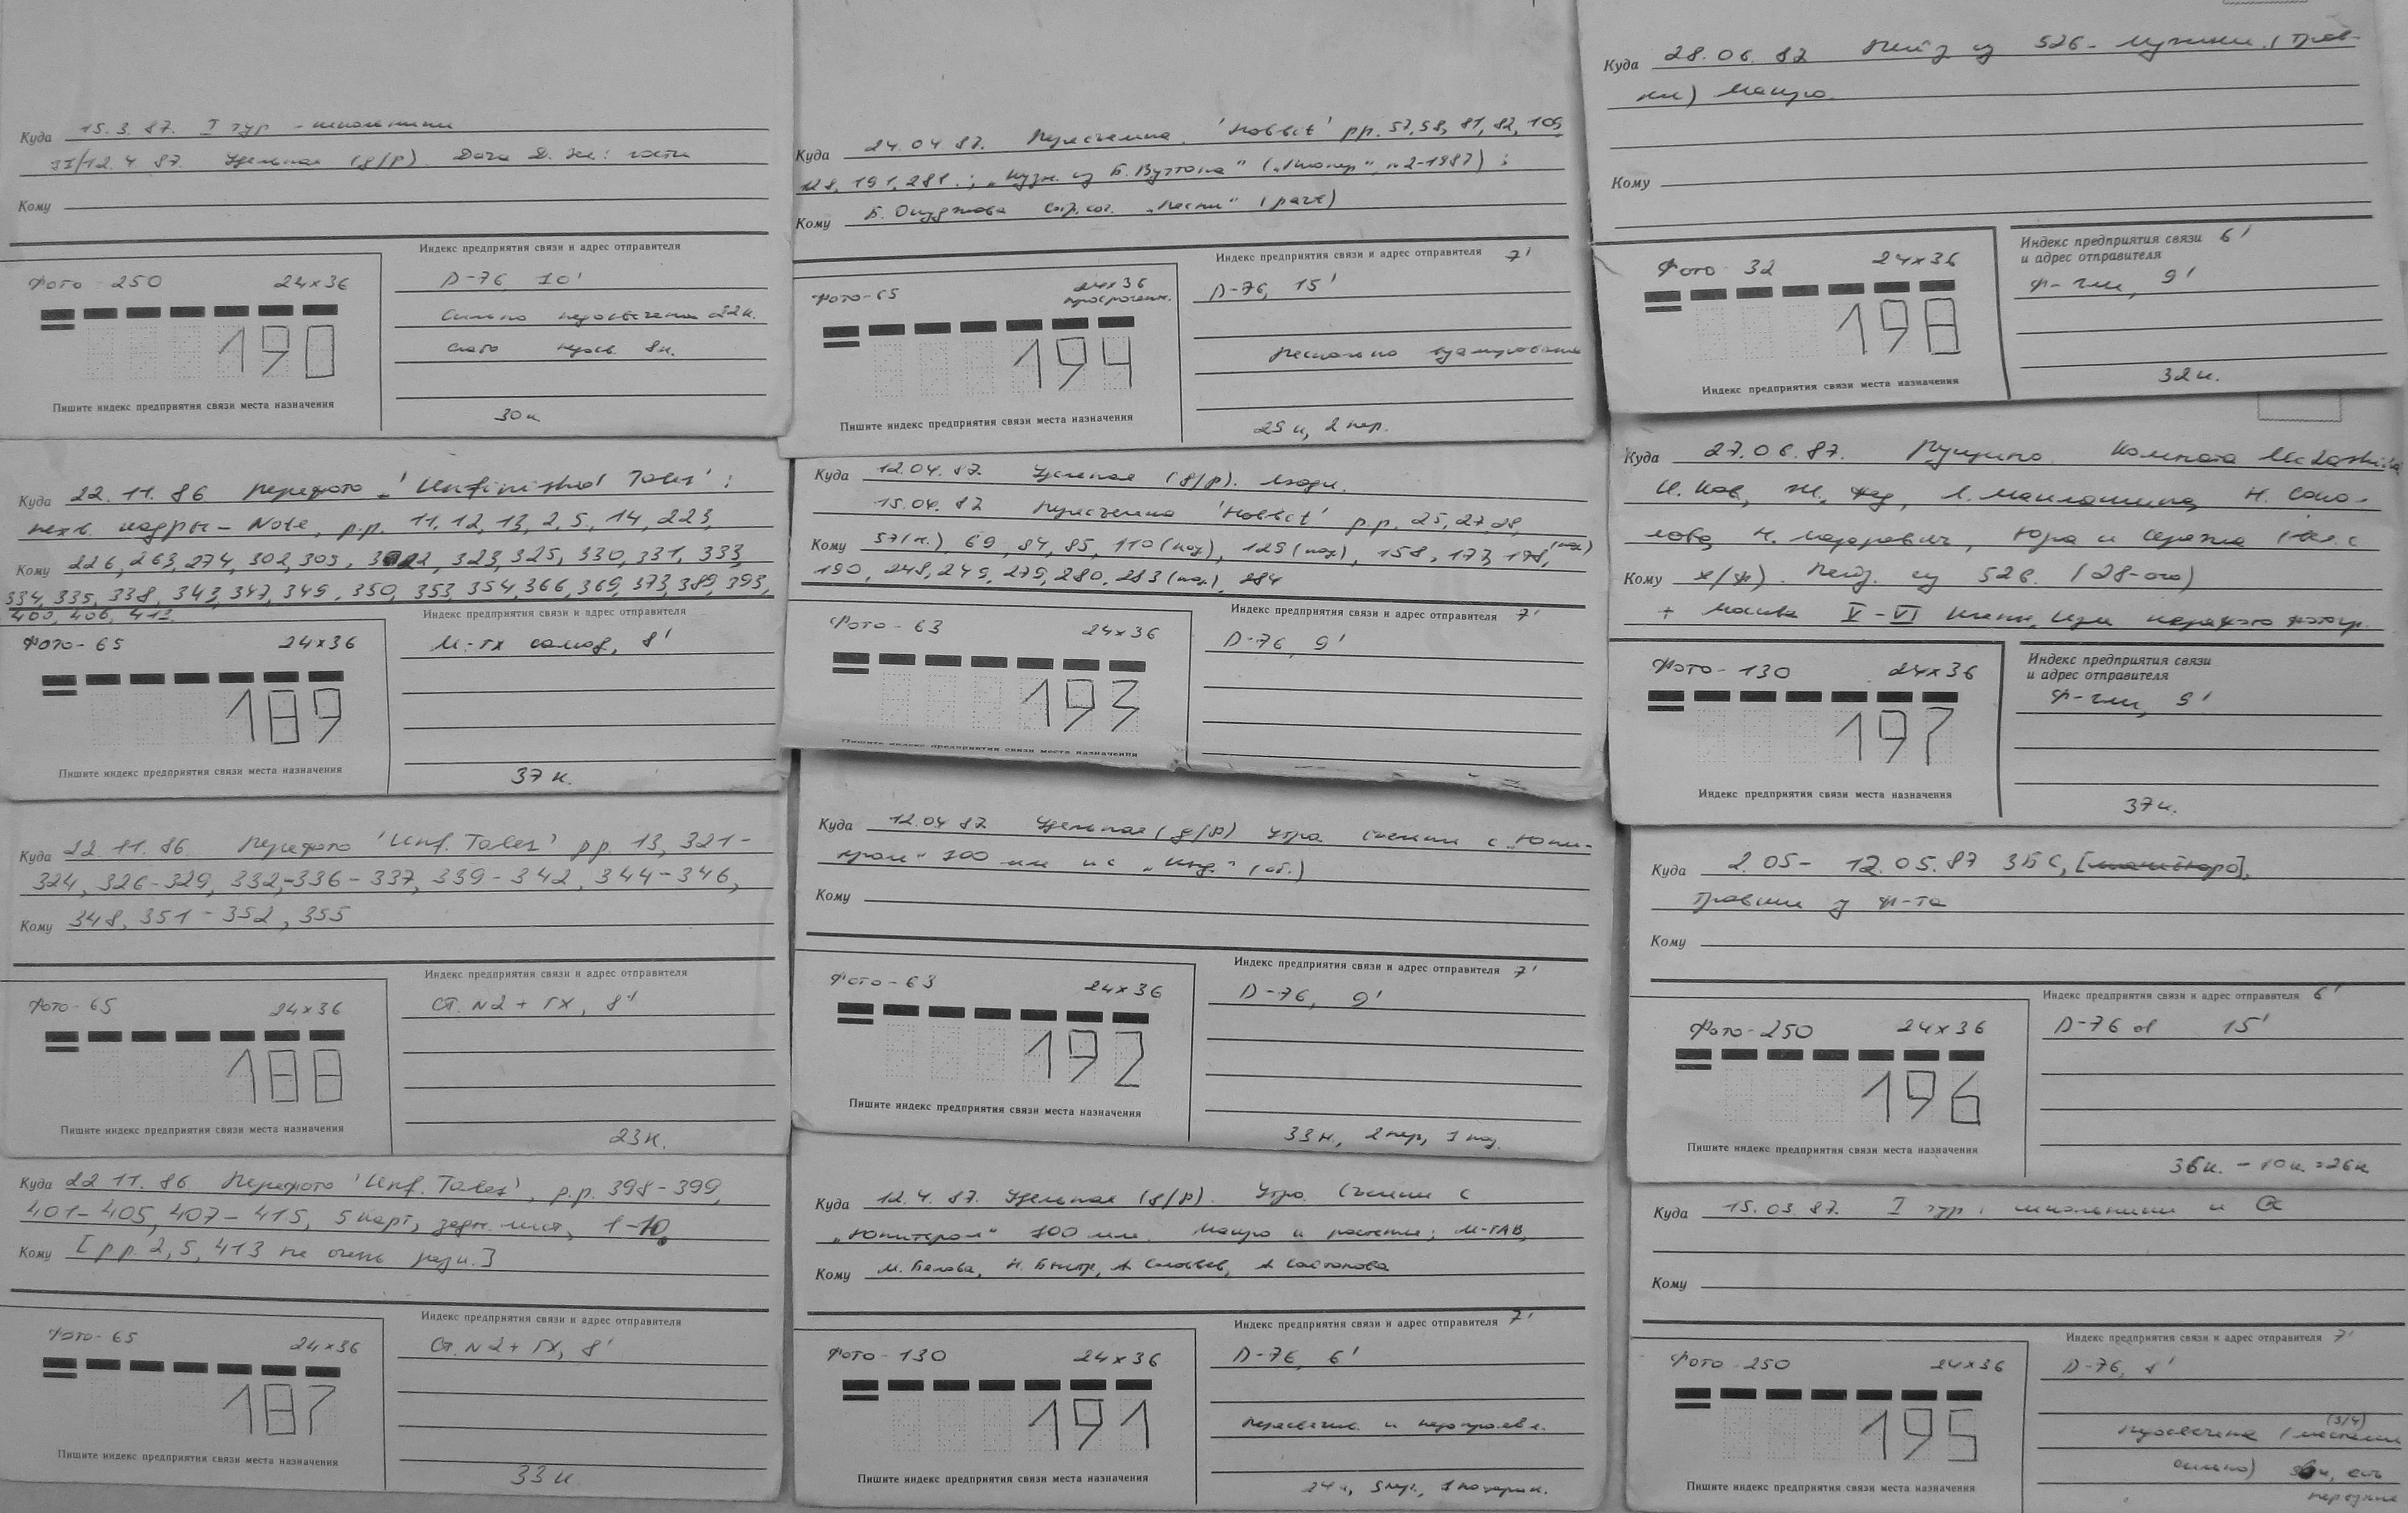 Куда 15.3.87. I тур - школьники
II/12.4 87. Удельная (д/р). Дача Д. гости
Кому
Индекс предприятия связи и адрес отправителя
Фото - 250 24x36
D-76, 10'
сильно недосвечена 22к.
слабо 8к.
190
Пишите индекс предприятия связи места назначения
30к
Куда 22.11.86 Перефото 'Unfinished Tales':
кадры - Note, p.p. 11, 12, 13, 2, 5, 14, 223,
Кому 226, 263, 274, 302, 305, 323, 325, 330, 331, 333,
334, 335, 338, 343, 347, 349, 350, 353, 354, 366, 369, 373, 389, 393,
400, 406, 413.
Индекс предприятия связи и адрес отправителя
Фото - 65 24x36
8'
189
Пишите индекс предприятия связи места назначения
37к.
Куда 22.11.86. Перефото 'Unf. Tales' pp. 13, 321-
324, 326-329, 332, -336-337, 339-342, 344-346,
Кому 348, 351-352, 355
Индекс предприятия связи и адрес отправителя
Фото - 65 24x36
Ст. N2 + ГХ, 8'
188
Пишите индекс предприятия связи места назначения
23к.
Куда 22 11. 86 Перефото 'Unf. Tales', p.p. 398-399,
401-405, 407-415, 5 карт, задн. лист, 1-10.
Кому [pp. 2, 5, 413 не очень резк.]
Индекс предприятия связи и адрес отправителя
Фото - 65 24x36
Ст. N2 + ГХ, 8'
187
Пишите индекс предприятия связи места назначения
33к
Куда 24.04 87. Пересъемка. 'Hobbit' pp. 57, 58, 81, 82, 109,
128, 191, 281.; „Кузн. из Б. Вуттона" („Пионер", N2-1987);
Кому Б. Окуджава „Песни" (part)
Индекс предприятия связи и адрес отправителя 7'
Фото-65 24x36
просрочен.
D-76, 15'
Несколько вуалирована
194
Пишите индекс предприятия связи места назначения
29к, 2 пер.
Куда 12.04.87. Удельная (д/р). Люди.
15.04.87 Пересъемка 'Hobbit' p.p. 25, 27, 28,
Кому 57(н.), 69, 84, 85, 110 (пол), 129 (пол), 158, 173, 178, (пол)
190, 248, 249, 279, 280, 283 (пол), 284
Индекс предприятия связи и адрес отправителя 7'
Фото - 63 24x36
D-76, 9'
193
Пишите индекс предприятия связи места назначения
Куда 12.04 87. Удельная (д/р) Утро. Съемки с „Юпи-
тером" 100 мм и с „Инд." (об.)
Кому
Индекс предприятия связи и адрес отправителя 7'
Фото - 63 24x36
D-76, 9'
192
Пишите индекс предприятия связи места назначения
33к., 2 пер, 1 пол.
Куда 12.4.87. Удельная (д/р). Утро. Съемки с
„Юпитером" 100 мм. Макро и растения; М-ГАВ,
Кому М. Белова, А Соловьев,
Индекс предприятия связи и адрес отправителя 7'
Фото - 130 24x36
D-76, 6'
Пересвечен. и недопроявл.
191
Пишите индекс предприятия связи места назначения
24к, 5 пер.,
Куда 28.06.87 Пейз из 526 - лужики (трав-
ки) Макро.
Кому
Индекс предприятия связи и адрес отправителя 6'
Фото 32 24x36
9'
198
Индекс предприятия связи места назначения
32к.
Куда 27.06.87. Пущино. Комната
И. Ков, Л. Маклашина, Н. Соко-
лова, Юра и Сережа
Кому х/ф). Пейз. из 526. (28-ого)
+ V-VI
Индекс предприятия связи и адрес отправителя
Фото - 130 24x36
9'
197
Индекс предприятия связи места назначения
37к.
Куда 2.05 - 12.05.87 ЗБС,
Травки у ф-та
Кому
Индекс предприятия связи и адрес отправителя 6'
Фото - 250 24x36
D-76 15'
196
Пишите индекс предприятия связи места назначения
36к. - 10к. = 26к
Куда 15.03.87. I тур: школьники и
Кому
Индекс предприятия связи и адрес отправителя 7'
Фото - 250 24x36
D-76, 8'
(3/4)
сильно)
195
Пишите индекс предприятия связи места назначения